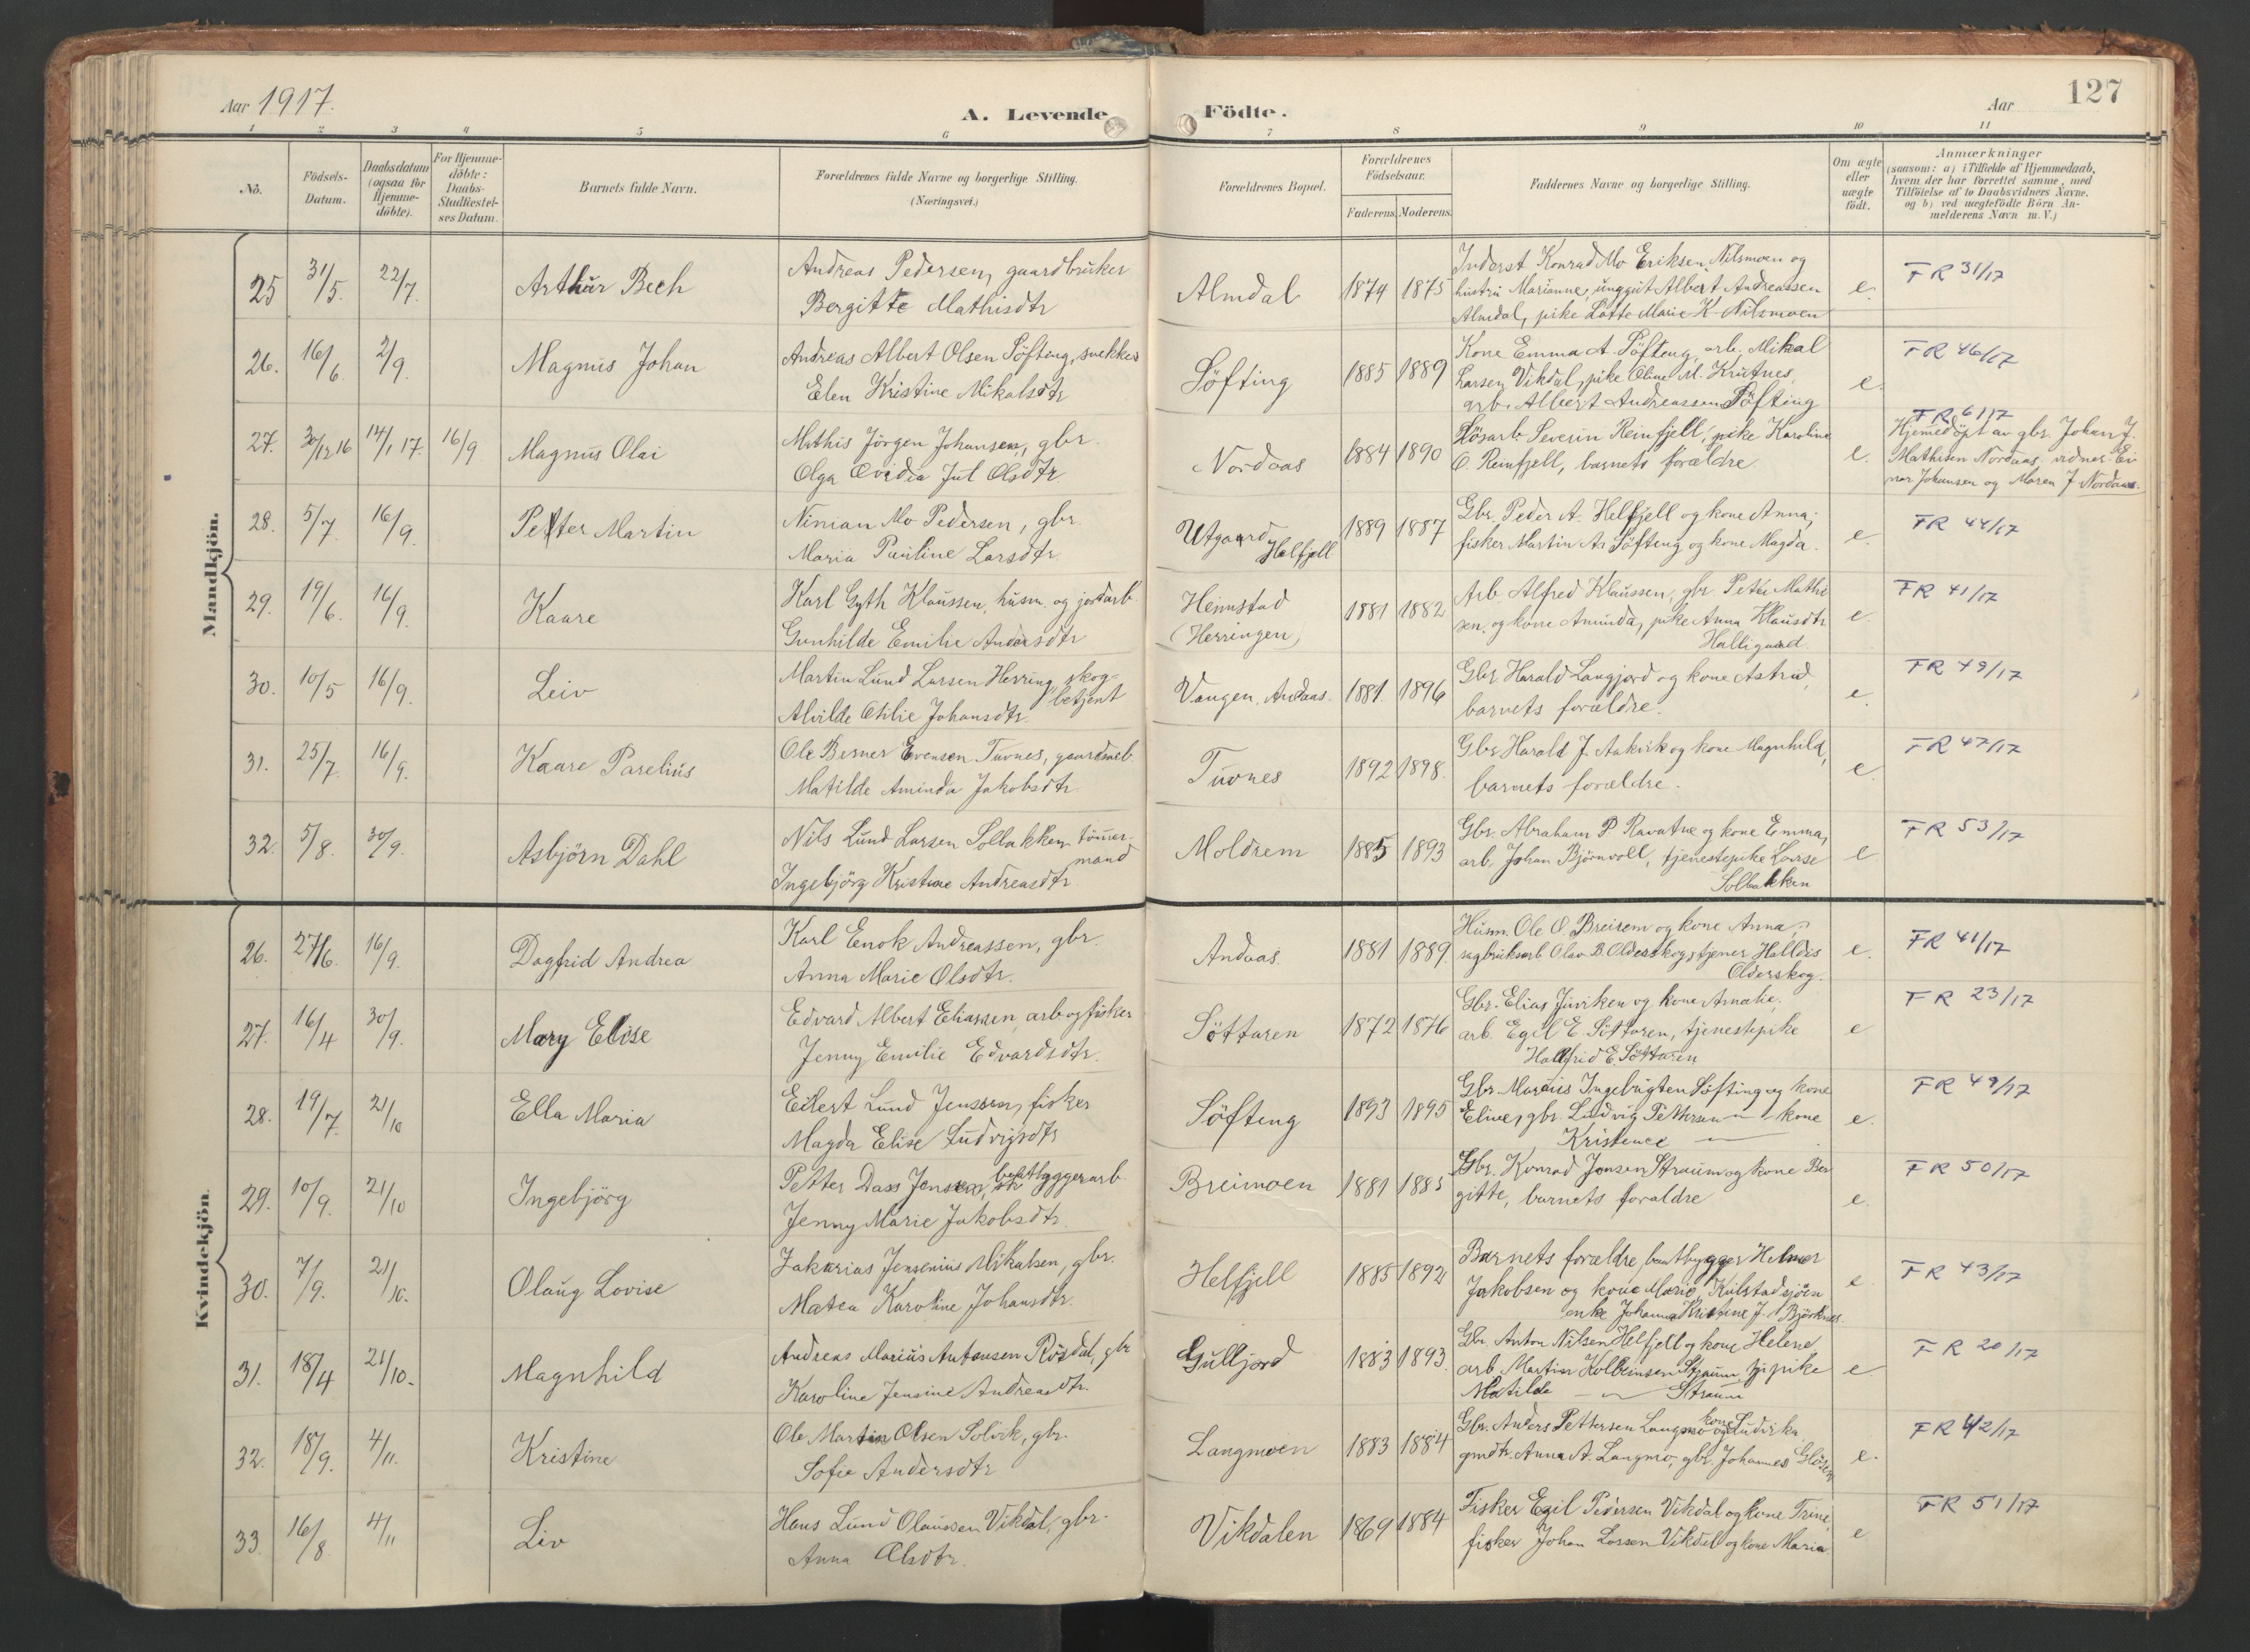 Aar 1917.
A. Levende Födte.
Aar
127
1 2 3 4 5 6 7 8 9 10 11
No.
Födsels-
Datum.
Daabsdatum
(ogsaa for
Hjemme-
döbte).
For Hjemme-
döbte:
Daabs-
Stadfæstel-
ses Datum.
Barnets fulde Navn.
Forældrenes fulde Navne og borgerlige Stilling.
(Næringsvei.)
Forældrenes Bopæl.
Forældrenes
Födselsaar.
Faderens. Moderens.
Faddernes Navne og borgerlige Stilling.
Om ægte
eller
uægte
födt.
Anmærkninger
(saasom: a) i Tilfælde af Hjemmedaab,
hvem der har forrettet samme, med
Tilföielse af to Daabsvidners Navne.
og b) ved uægtefödte Börn An-
melderens Navn m. V.)
Mandkjön.
25 31/5. 22/7. Arthur Bech
Andreas Pedersen, gaardbruker
Bergitte Mathisdtr
Almdal 1874 1875
Inderst Konrad Mo Eriksen Nilsmoen og
hustru Marianne, unggut Albert Andreassen
Almdal, pike Lotte Marie K. Nilsmoen
e. FR 31/17
26. 16/6 2/9. Magnus Johan
Andreas Albert Olsen Söfteng, snekker
Elen Kristine Mikalsdtr
Söfting 1885 1889
Kone Emma A. Söfteng, arb. Mikal
Larsen Vikdal, pike Oline M. Krutnes,
arb. Albert Andreassen Söfting
e. FR 46/17
27. 30/12 16 14/1 17. 16/9 Magnus Olai
Mathis Jörgen Johansen, gbr.
Olga Ovidia Jul Olsdtr.
Nordaas 1884 1890
Lösarb. Severin Reinfjell, pike Karoline
O. Reinfjell, barnets forældre.
e. FR 6/17
Hjemedöpt av gbr. Johan J.
Mathisen Nordaas. vidner Ei-
nar Johansen og Maren J Nordaas.
28. 5/7. 16/9. Petter Martin
Ninian Mo Pedersen, gbr.
Maria Pauline Larsdtr.
Utgaard
Helfjell 1889 1887
Gbr. Peder A. Helfjell og kone Anna;
fisker Martin A. Söfteng og kone Magda.
e. FR 44/17
29. 19/6. 16/9. Kaare
Karl Gyth Klaussen, husm. og jordarb.
Gunhilde Emilie Andersdtr
Heimstad
(Herringen) 1881 1882
Arb. Alfred Klaussen, gbr. Peter Mathi
sen. og kone Aminda, pike Anna Klausdtr
Halligaard.
e. FR 41/17
30. 10/5 16/9. Leiv
Martin Lund Larsen Herring, skog-
betjent
Alvilde Otilie Johansdtr.
Vangen, Andaas. 1881. 1896
Gbr. Harald Langjord og kone Astrid,
barnets forældre.
e. FR 49/17
31. 25/7. 16/9. Kaare Parelius
Ole Berner Evensen Tuvnes, gaardarb.
Matilde Aminda Jakobsdtr.
Tuvnes 1892 1898.
Gbr. Harald J. Aakvik og kone Magnhild,
barnets forældre.
e. FR 47/17
32. 5/8. 30/9. Asbjörn Dahl
Nils Lund Larsen Solbakken tömmer-
mand
Ingebjörg Kristine Andreasdtr
Moldrem 1885 1893
Gbr. Abraham P. Ravatne og kone Emma,
arb. Johan Björnvoll, tjenestepike Lovise
Solbakken
e FR 53/17
Kvindekjön.
26. 27/6. 16/9. Dagfrid Andrea
Karl Enok Andreassen, gbr.
Anna Marie Olsdtr.
Andaas. 1881 1889.
Husm. Ole O. Breisem og kone Anna;
sagbruksarb Olav B. Olderskog, tjener Halldis
Olderskog.
e. FR 41/17
27. 16/4 30/9. Mary Elise
Edvard Albert Eliassen arb og fisker
Jenny Emilie Edvardsdtr.
Söttaren 1872 1876
Gbr. Elias Juviken og kone Amalie,
arb. Egil E. Söttaren, tjenestepike
Hallfrid E. Söttaren
e FR 23/17
28. 19/7. 21/10 Ella Maria
Eilert Lund Jenssen, fisker
Magda Elise Ludvigsdtr
Söfteng 1893 1895
Gbr. Marius Ingebrigten Söfting og kone
Eline, gbr. Ludvig Pettersen — kone
Kristence —
e. FR 49/17
29. 10/9. 21/10 Ingebjörg
Petter Dass Jensen, baatbyggerarb.
Jenny Marie Jakobsdtr.
Breimoen 1881 1885
Gbr. Konrad Jensen Straum og kone Ber
gitte, barnets foraldre
e. FR 50/17
30. 7/9. 21/10. Olaug Lovise
Zakarias Jensenius Mikalsen, gbr.
Matea Karoline Johansdtr.
Helfjell 1885 1892
Barnets forældre, baatbygger Helmer
Jakobsen og kone Marie, Kulstadsjöen
enke Johanna Kristine J. Björknes.
e FR 43/17
31. 18/4 21/10. Magnhild
Andreas Marius Antonsen Rösdal, gbr
Karoline Jensine Andreasdtr.
Gulljord 1883 1893.
Gbr. Anton Nilsen Helfjell og kone Helene,
arb. Martin Kolbeinsen Straum, tj. pike
Matilde — Straum
e FR 20/17
32. 18/9. 4/11. Kristine
Ole Martin Olsen Solvik, gbr.
Sofie Andersdtr
Langmoen 1883 1884
Gbr. Anders Pettersen Langmo og kone Ludvika
gmdtr. Anna A. Langmo, gbr. Johannes
e. FR 42/17
33. 16/8. 4/11 Liv
Hans Lund Olaussen Vikdal, gbr.
Anna Olsdtr.
Vikdalen 1869 1884
Fisker Egil Pedersen Vikdal og kone Trine,
fisker Johan Larsen Vikdal og kone Maria.
e FR 51/17